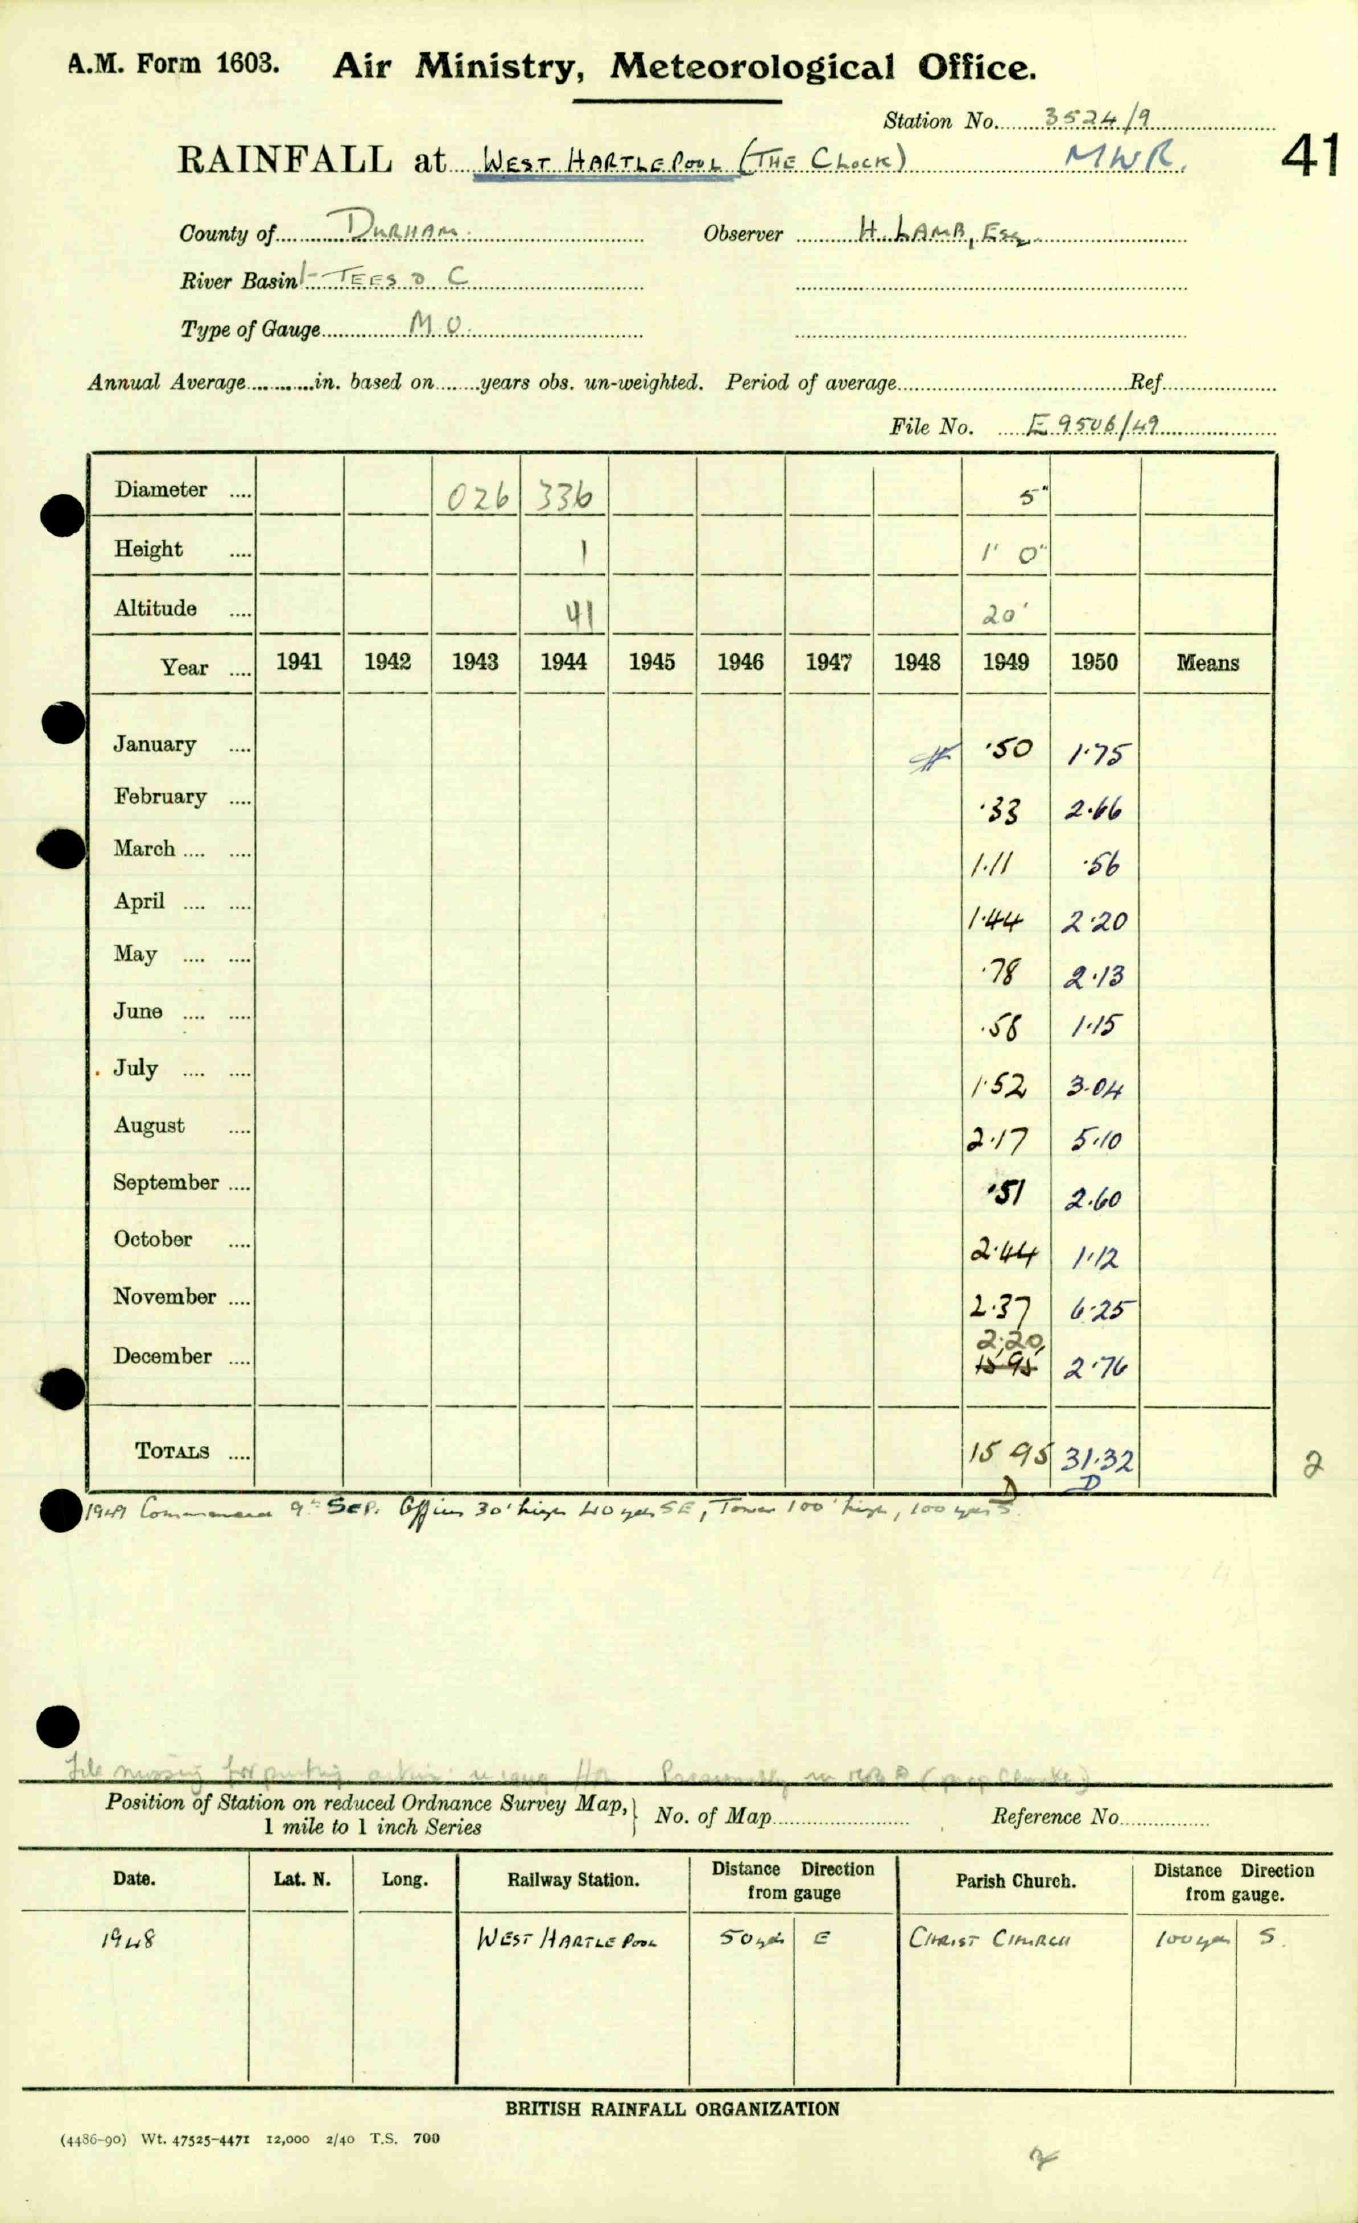 A.M. Form 1603. Air Ministry, Meteorological Office.
Station No. 3524/9
RAINFALL at WEST HARTLEPOOL (THE CLOCK) MWR. 41
County of DURHAM. Observer H. LAMB, Esq.
River Basin TEES & C
Type of Gauge M O.
Annual Average in. based on years obs. un-weighted. Period of average Ref.
File No. E 9506/49
Diameter .... 026 336 5"
Height .... 1 1' 0"
Altitude .... 41 20'
Year .... 1941 1942 1943 1944 1945 1946 1947 1948 1949 1950 Means
January .... ·50 1·75
February .... ·33 2·66
March .... .... 1·11 ·56
April .... .... 1·44 2·20
May .... .... ·78 2·13
June .... .... ·58 1·15
July .... .... 1·52 3·04
August .... 2·17 5·10
September .... ·51 2·60
October .... 2·44 1·12
November .... 2·37 6·25
2·20
December .... 15 95 2·76
TOTALS .... 15 95 31·32 2
D D
1949 Commenced 9th SEP. Office 30' high 40 yds SE, Tower 100' high, 100 yds S.
File missing for
Position of Station on reduced Ordnance Survey Map, } No. of Map Reference No.
1 mile to 1 inch Series
Date. Lat. N. Long. Railway Station. Distance Direction from gauge Parish Church. Distance Direction from gauge.
1948 WEST HARTLEPOOL 50 yds E CHRIST CHURCH 100 yds S.
BRITISH RAINFALL ORGANIZATION
(4486-90) Wt. 47525-4471 12,000 2/40 T.S. 700